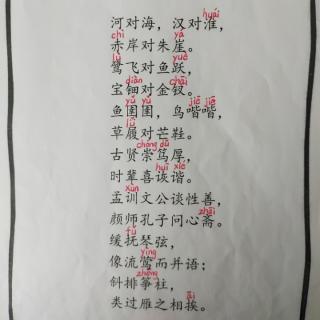 huái
河对海，汉对淮，
chì yá
赤岸对朱崖。
lù yuè
鹭飞对鱼跃，
diàn chāi
宝钿对金钗。
yǔ yǔ jiē jiē
鱼圉圉，鸟喈喈，
lǚ
草履对芒鞋。
chóng dǔ
古贤崇笃厚，
huī xié
时辈喜诙谐。
xùn
孟训文公谈性善，
zhāi
颜师孔子问心斋。
fǔ
缓抚琴弦，
yīng
像流莺而并语；
zhēng
斜排筝柱，
āi
类过雁之相挨。